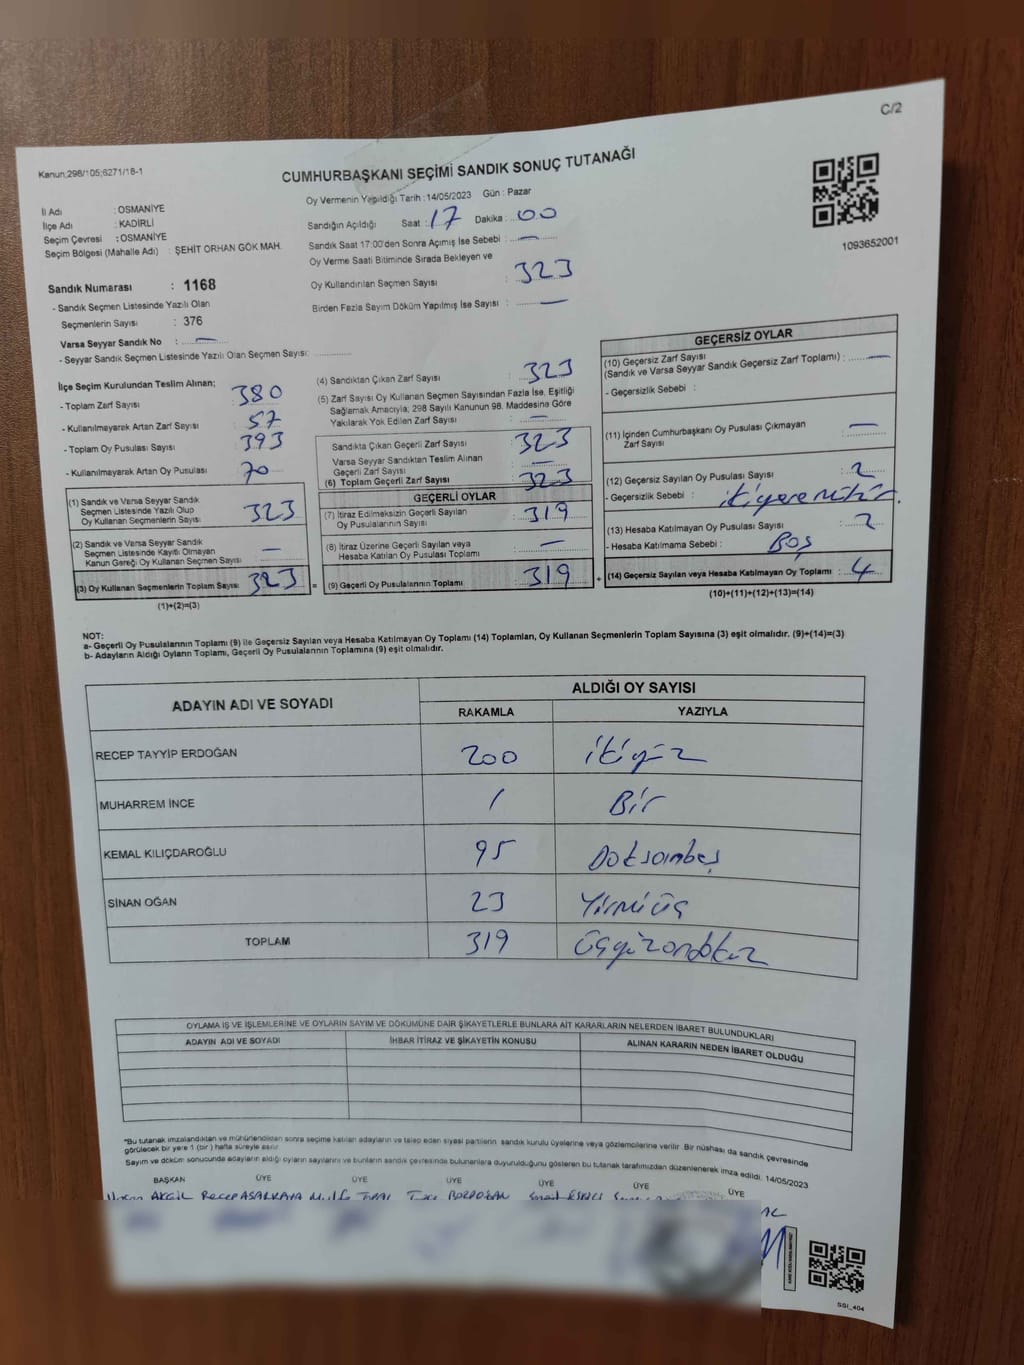 C/2
Kanun;298/105;6271/18-1
CUMHURBAŞKANI SEÇİMİ SANDIK SONUÇ TUTANAĞI
İl Adı : OSMANİYE
İlçe Adı : KADİRLİ
Seçim Çevresi : OSMANİYE
Seçim Bölgesi (Mahalle Adı) : ŞEHİT ORHAN GÖK MAH.
Oy Vermenin Yapıldığı Tarih :14/05/2023 Gün : Pazar
Sandığın Açıldığı Saat : 17 Dakika : 00
Sandık Saat 17:00'den Sonra Açımış İse Sebebi : —
Oy Verme Saati Bitiminde Sırada Bekleyen ve
Oy Kullandırılan Seçmen Sayısı 323
Birden Fazla Sayım Döküm Yapılmış İse Sayısı : —
1093652001
Sandık Numarası : 1168
- Sandık Seçmen Listesinde Yazılı Olan
Seçmenlerin Sayısı : 376
Varsa Seyyar Sandık No : —
- Seyyar Sandık Seçmen Listesinde Yazılı Olan Seçmen Sayısı:
İlçe Seçim Kurulundan Teslim Alınan;
- Toplam Zarf Sayısı 380
- Kullanılmayarak Artan Zarf Sayısı 57
- Toplam Oy Pusulası Sayısı 393
- Kullanılmayarak Artan Oy Pusulası 70
(1) Sandık ve Varsa Seyyar Sandık
Seçmen Listesinde Yazılı Olup
Oy Kullanan Seçmenlerin Sayısı 323
(2) Sandık ve Varsa Seyyar Sandık
Seçmen Listesinde Kayıtlı Olmayan
Kanun Gereği Oy Kullanan Seçmen Sayısı —
(3) Oy Kullanan Seçmenlerin Toplam Sayısı 323 =
(1)+(2)=(3)
(4) Sandıktan Çıkan Zarf Sayısı : 323
(5) Zarf Sayısı Oy Kullanan Seçmen Sayısından Fazla İse, Eşitliği
Sağlamak Amacıyla; 298 Sayılı Kanunun 98. Maddesine Göre
Yakılarak Yok Edilen Zarf Sayısı : —
Sandıkta Çıkan Geçerli Zarf Sayısı : 323
Varsa Seyyar Sandıktan Teslim Alınan
Geçerli Zarf Sayısı : —
(6) Toplam Geçerli Zarf Sayısı : 323
GEÇERLİ OYLAR
(7) İtiraz Edilmeksizin Geçerli Sayılan
Oy Pusulalarının Sayısı : 319
(8) İtiraz Üzerine Geçerli Sayılan veya
Hesaba Katılan Oy Pusulası Toplamı : —
(9) Geçerli Oy Pusulalarının Toplamı : 319 +
GEÇERSİZ OYLAR
(10) Geçersiz Zarf Sayısı
(Sandık ve Varsa Seyyar Sandık Geçersiz Zarf Toplamı) : —
- Geçersizlik Sebebi :
(11) İçinden Cumhurbaşkanı Oy Pusulası Çıkmayan
Zarf Sayısı : —
(12) Geçersiz Sayılan Oy Pusulası Sayısı : 2
- Geçersizlik Sebebi :
(13) Hesaba Katılmayan Oy Pusulası Sayısı : 2
- Hesaba Katılmama Sebebi : Boş
(14) Geçersiz Sayılan veya Hesaba Katılmayan Oy Toplamı : 4
(10)+(11)+(12)+(13)=(14)
NOT:
a- Geçerli Oy Pusulalarının Toplamı (9) ile Geçersiz Sayılan veya Hesaba Katılmayan Oy Toplamı (14) Toplamları, Oy Kullanan Seçmenlerin Toplam Sayısına (3) eşit olmalıdır. (9)+(14)=(3)
b- Adayların Aldığı Oyların Toplamı, Geçerli Oy Pusulalarının Toplamına (9) eşit olmalıdır.
ADAYIN ADI VE SOYADI ALDIĞI OY SAYISI
RAKAMLA YAZIYLA
RECEP TAYYİP ERDOĞAN 200 ikiyüz
MUHARREM İNCE 1 Bir
KEMAL KILIÇDAROĞLU 95 Doksanbeş
SİNAN OĞAN 23 Yirmiüç
TOPLAM 319 üçyüzondokuz
OYLAMA İŞ VE İŞLEMLERİNE VE OYLARIN SAYIM VE DÖKÜMÜNE DAİR ŞİKAYETLERLE BUNLARA AİT KARARLARIN NELERDEN İBARET BULUNDUKLARI
ADAYIN ADI VE SOYADI İHBAR İTİRAZ VE ŞİKAYETİN KONUSU ALINAN KARARIN NEDEN İBARET OLDUĞU
*Bu tutanak imzalandıktan ve mühürlendikten sonra seçime katılan adayların ve talep eden siyasi partilerin sandık kurulu üyelerine veya gözlemcilerine verilir. Bir nüshası da sandık çevresinde
görülecek bir yere 1 (bir) hafta süreyle asılır.
Sayım ve döküm sonucunda adayların aldığı oyların sayılarını ve bunların sandık çevresinde bulunanlara duyurulduğunu gösteren bu tutanak tarafımızdan düzenlenerek imza edildi. 14/05/2023
BAŞKAN ÜYE ÜYE ÜYE ÜYE ÜYE ÜYE
AKGİL
SSI_404